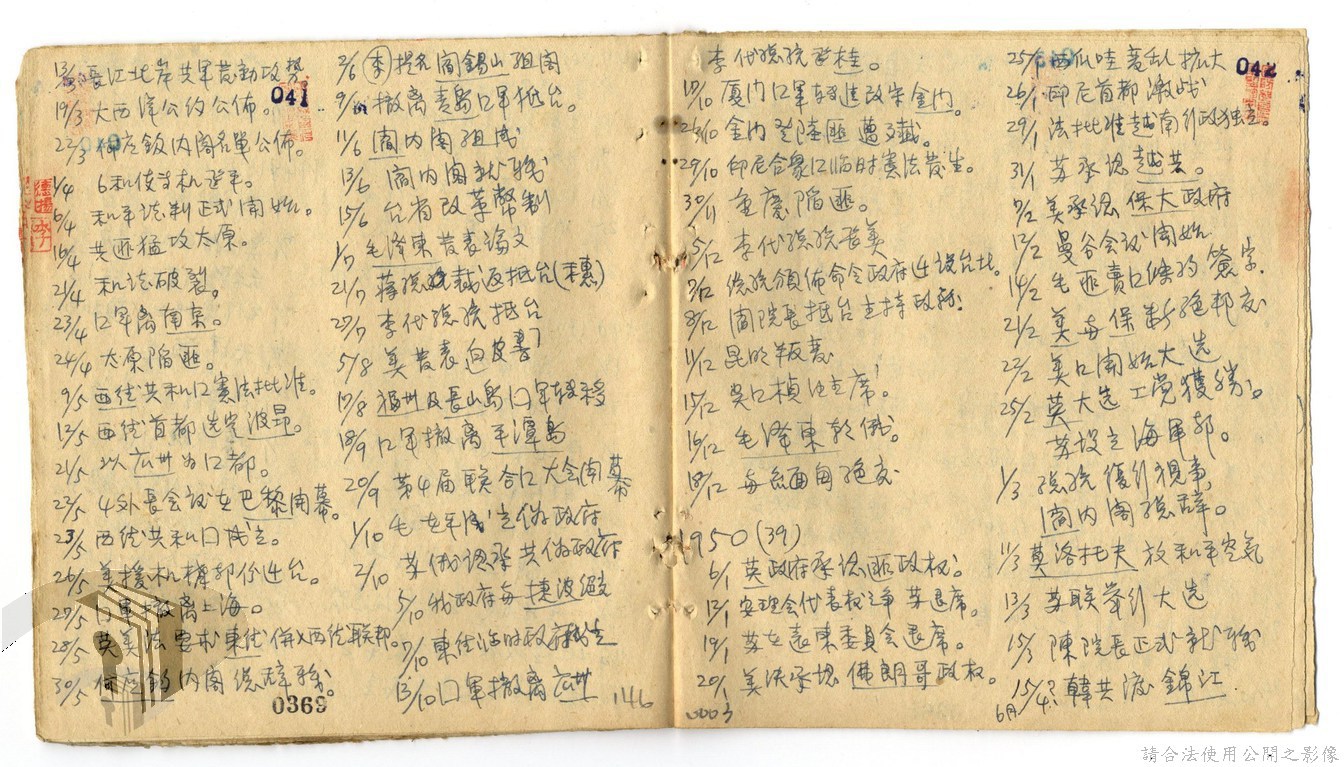 13/3 長江北岸共軍發動攻勢
041
19/3 大西洋公約公佈。
22/3 何应欽内阁名單公佈。
1/4 6和使首机延平。
6/4 和平談判正式開始。
16/4 共匪猛攻太原。
21/4 和談破裂。
23/4 囗軍离南京。
24/4 太原陥匪。
9/5 西德共和囗憲法批准。
12/5 西德首都选定波昂。
21/5 以広州为囗都。
23/5 4外長会议在巴黎開幕。
23/5 西德共和囗成立。
26/5 美援机構部份迁台。
27/5 囗軍撤离上海。
28/5 英美法要求東德併入西德联邦。
30/5 何应欽内阁總辞職。
0369
2/6 李提名閻錫山組阁
9/6 撤离青島囗軍抵台。
11/6 閻内阁組成
13/6 閻内阁就職
15/6 台省改革幣制
1/7 毛澤東發表論文
21/7 蔣總裁返抵台(穗)
27/7 李代總統抵台
5/8 美發表白皮書
17/8 福州及長山島囗軍轉移
18/9 囗軍撤离平潭島
20/9 第4届联合囗大会開幕
1/10 毛在平成立偽政府
2/10 苏俄認承共偽政府
5/10 我政府與捷波絕交
7/10 東德临时政府成立
13/10 囗軍撤离広州
146
李代總統飛桂。
17/10 厦门囗軍轉進改守金门。
26/10 金门登陸匪遭歼滅。
29/10 印尼合眾囗临时憲法發生。
30/11 重慶陥匪。
5/12 李代總統飛美
7/12 總統頒佈命令政府迁設台北。
8/12 閻院長抵台主持政務
11/12 昆明叛變
15/12 吳囗楨任主席
16/12 毛澤東訪俄。
18/12 與緬甸絕交
1950 (39)
6/1 英政府承認匪政权。
13/1 安理会代表权之爭苏退席。
19/1 苏在遠東委員会退席。
20/1 美決承認佛朗哥政权。
0003
25/1 西爪哇叛乱扩大
042
26/1 印尼首都激战
29/1 法批准越南行政独立。
31/1 苏承認越共。
7/2 美承認保大政府
13/2 曼谷会议開始
14/2 毛匪賣囗條約簽字.
21/2 美與保斷絕邦交
22/2 美囗開始大选
25/2 英大选工党獲勝。
苏設立海軍部。
1/3 總統復行視事,
閻内阁總辞。
11/3 莫洛托夫放和平空氣
13/3 苏联舉行大选
15/3 陳院長正式就職
6月 15/4? 韓共渡錦江
請合法使用公開之影像